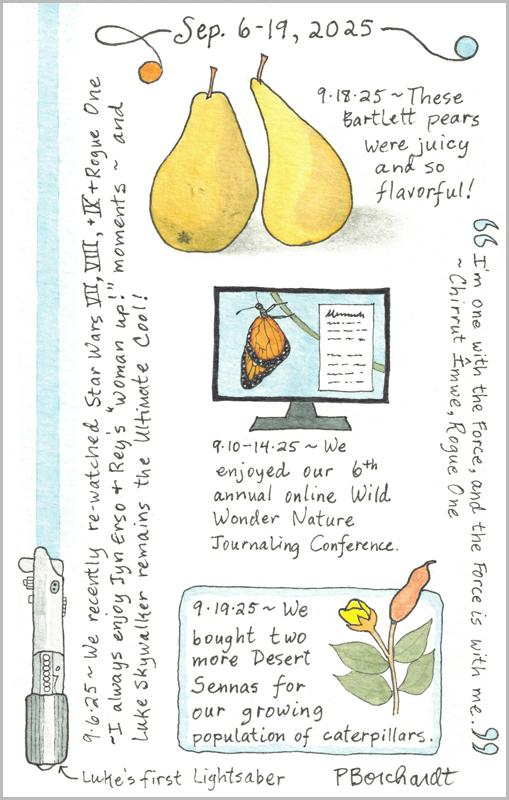 Sep. 6-19, 2025
9.18.25 ~ These
Bartlett pears
were juicy
and so
flavorful!
9.6.25 ~ We recently re-watched Star Wars VII, VIII, + IX + Rogue One
~ I always enjoy Jyn Erso + Rey's "woman up!" moments ~ and
Luke Skywalker remains the Ultimate Cool!
“I'm one with the Force, and the Force is with me.”
~ Chirrut Îmwe, Rogue One
9.10-14.25 ~ We
enjoyed our 6th
annual online Wild
Wonder Nature
Journaling Conference.
9.19.25 ~ We
bought two
more Desert
Sennas for
our growing
population of caterpillars.
Luke's first Lightsaber
PBorchardt